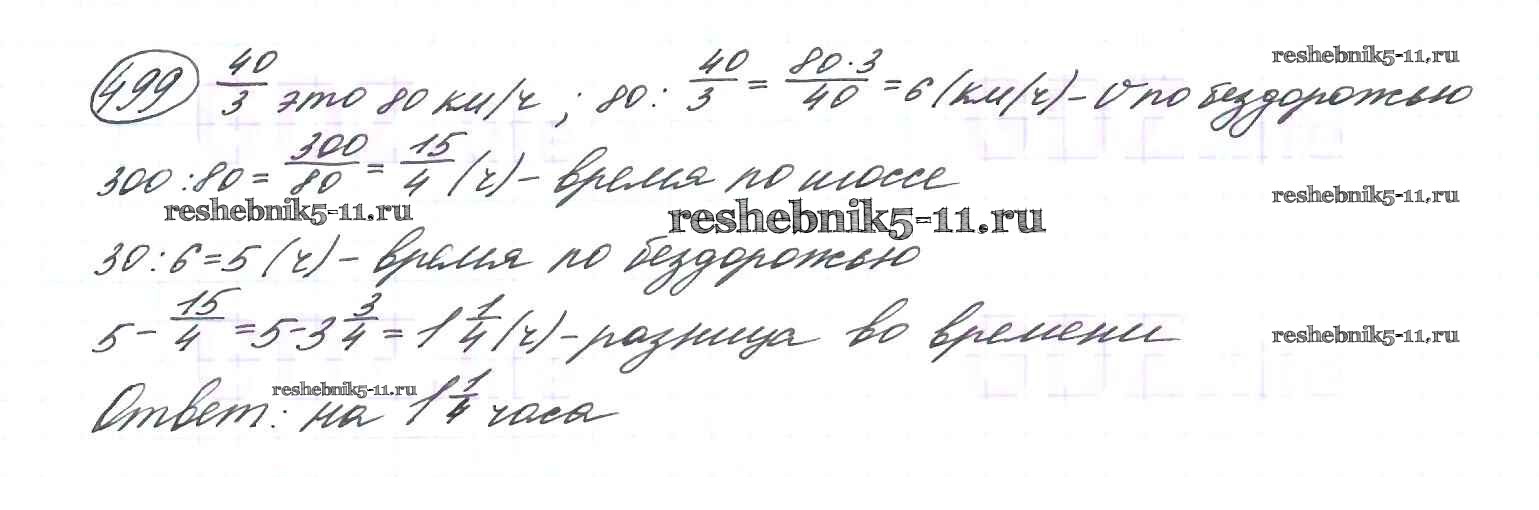 499 40/3 это 80 км/ч ; 80 : 40/3 = 80·3/40 = 6 (км/ч) – v по бездорожью
reshebnik5-11.ru
300 : 80 = 300/80 = 15/4 (ч) – время по шоссе
reshebnik5-11.ru
reshebnik5-11.ru
reshebnik5-11.ru
30 : 6 = 5 (ч) – время по бездорожью
5 – 15/4 = 5 – 3 3/4 = 1 1/4 (ч) – разница во времени
reshebnik5-11.ru
reshebnik5-11.ru
Ответ: на 1 1/4 часа